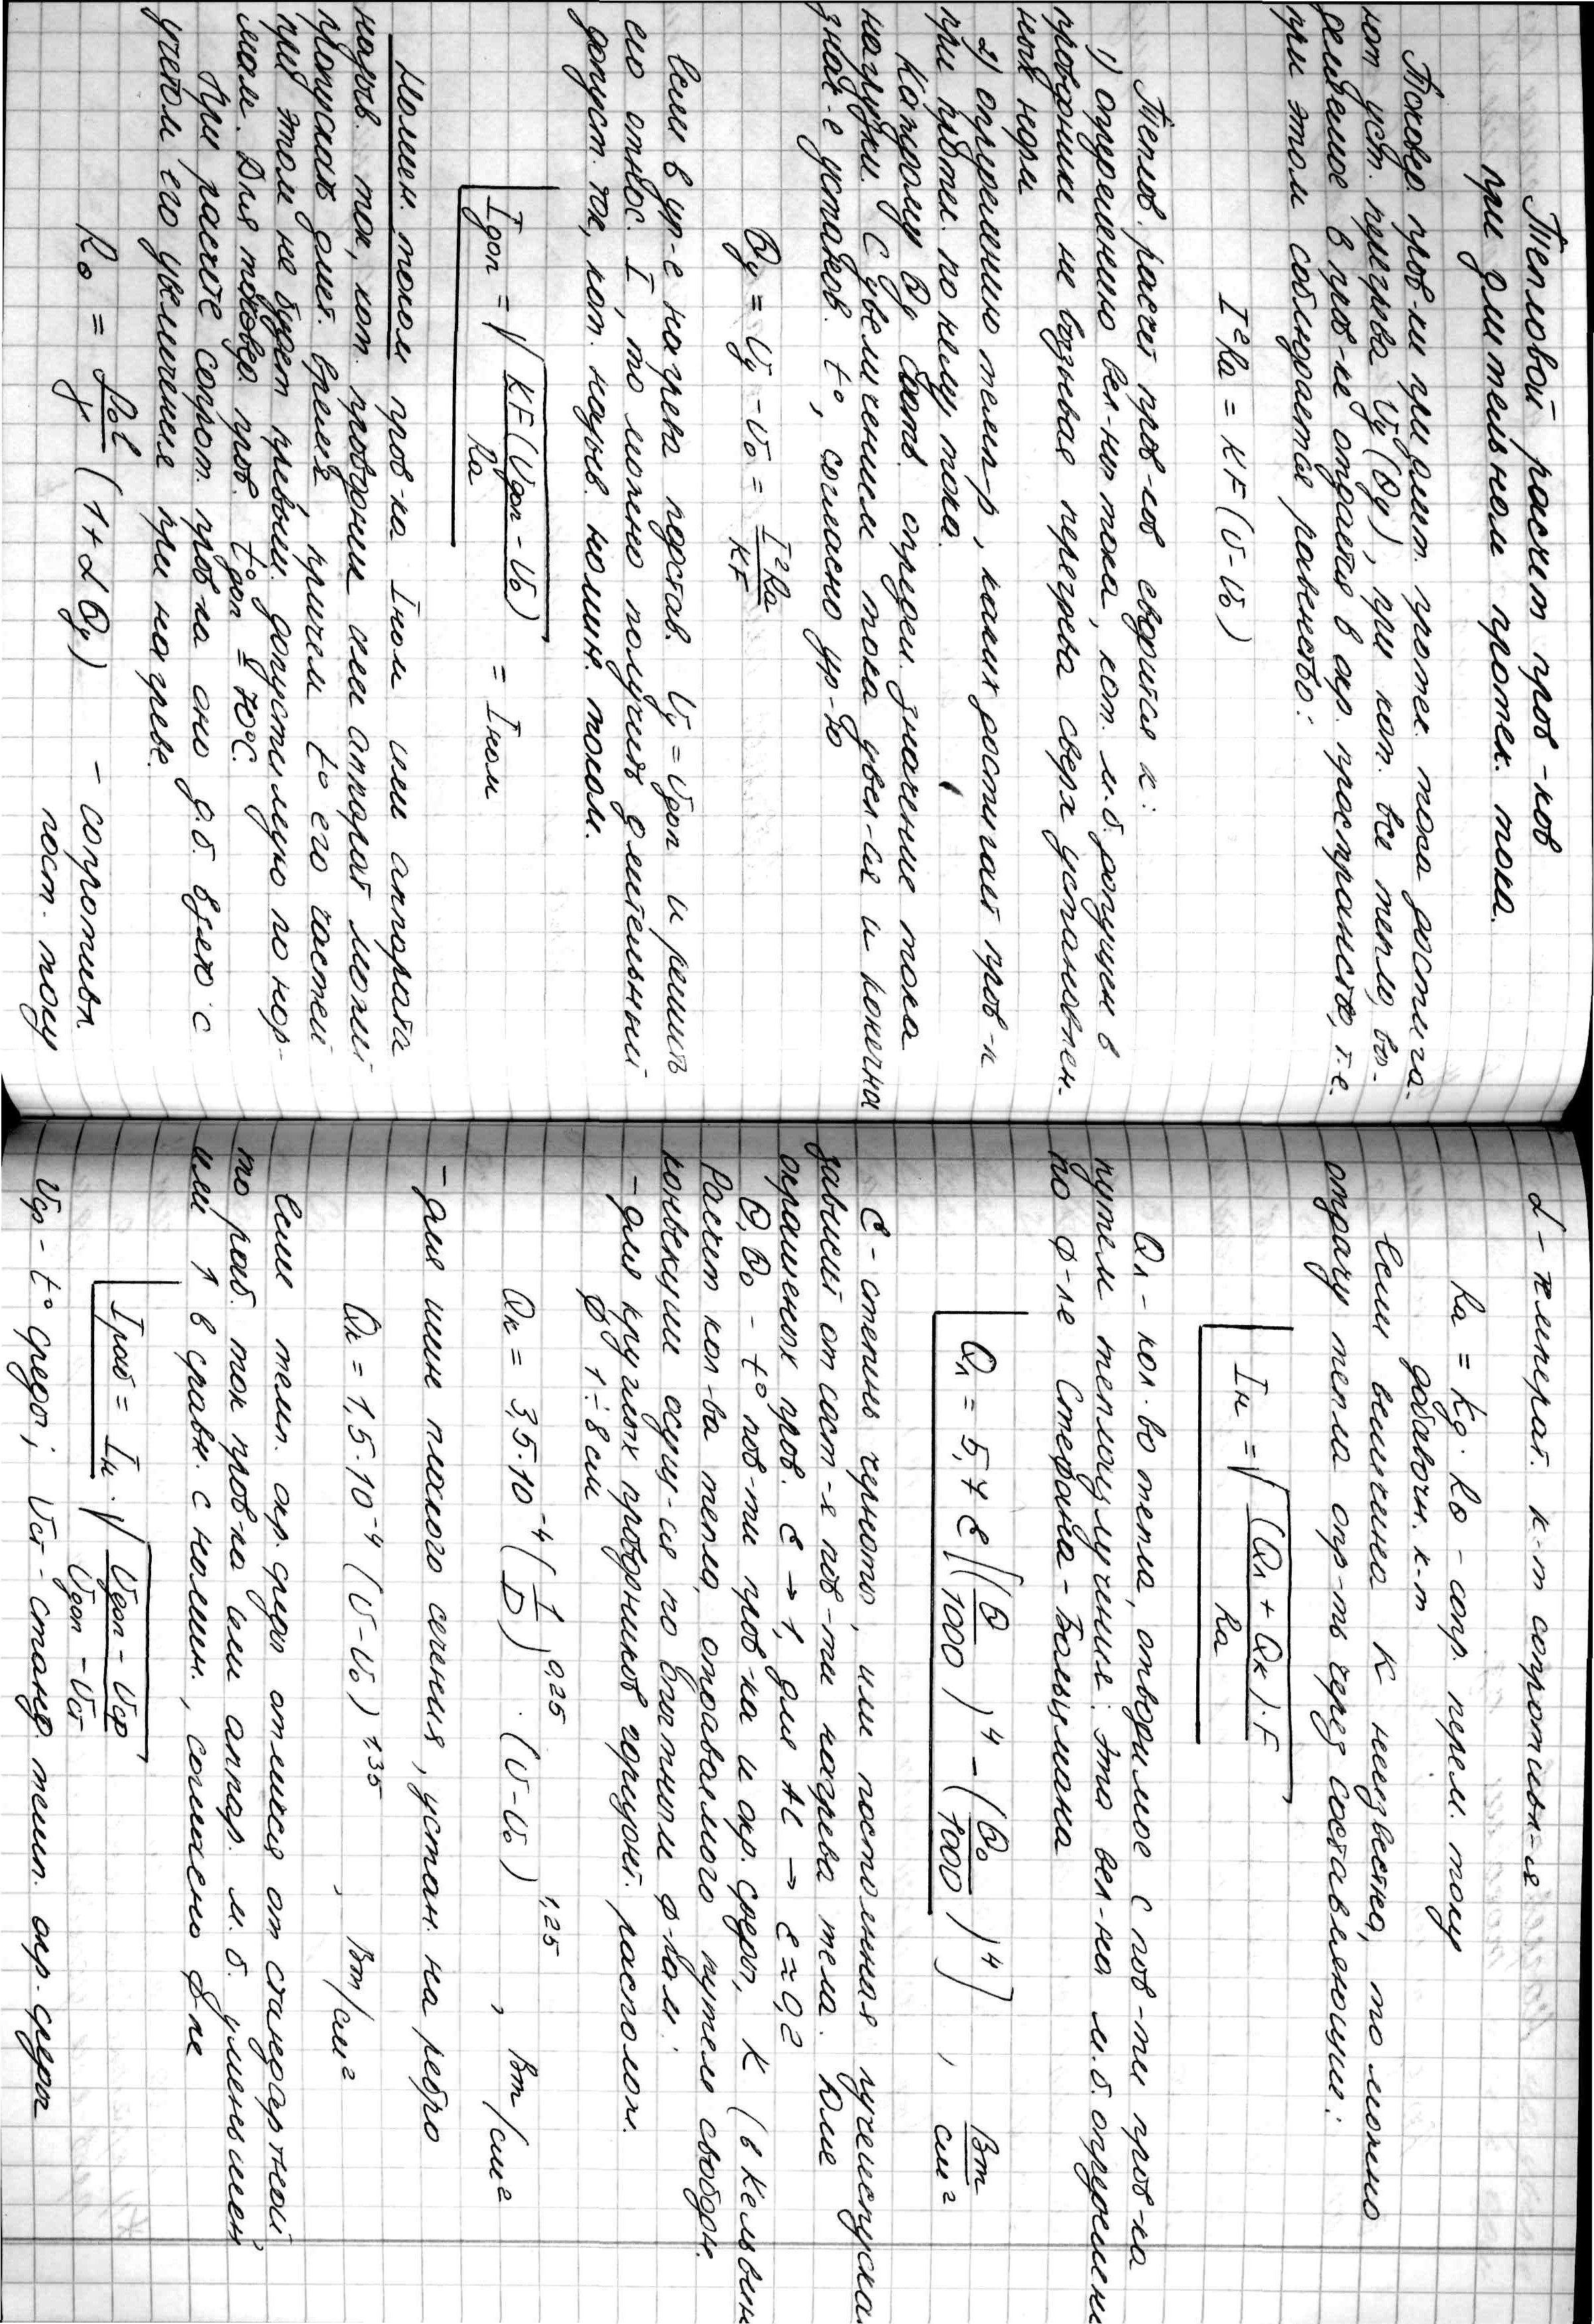 Тепловой расчет пров-ков
при длительном протек. тока.
Токовед. пров-ки при длит. протек. тока достига-
ют уст. перегрева Uу (Θу), при кот. все тепло, вы-
деляемое в пров-ке отдается в окр. пространство, т.е.
при этом соблюдается равенство:
I²Ra = KF(U-U₀)
Теплов. расчет пров-ков сводится к:
1) определению вел-ны тока, кот. м.б. допущен в
проводнике не вызывая перегрева сверх установлен.
ных норм
2) определению темп-р, каких достигает пров-к
при протек. по нему тока.
Каждому Θу соотв. определ. значение тока
нагрузки. С увеличением тока увел-ся и конечное
знач-е установ. t°, согласно ур-ю
Θу = Uу - U₀ = I²Ra / KF
Если в ур-е нагрева подстав. Uу = Uдоп и решить
его относ. I, то можно получить длительный
допуст. ток, кот. назыв. номин. током.
Iдоп = √(KF(Uдоп - U₀) / Ra) = Iном
Номин. током пров-ка Iном или аппарата
назыв. ток, кот. проводник или аппарат могут
пропускать длит. время, причем t° его частей
при этом не будет превыш. допустимую по нор-
мам. Для токовед. пров. t°доп = 70°С.
При расчете сопрот. пров-ка оно д.б. взято с
учетом его увеличения при нагреве.
R₀ = ρ₀l / q (1 + αΘу) - сопротивл.
пост. току
α - температ. к-т сопротивл-я
Ra = Kg · R₀ - сопр. перем. току
добавочн. к-т
Если величина K неизвестна, то можно
отдачу тепла опр-ть через составляющие:
Iн = √((Qл + Qк)·F / Ra)
Qл - кол-во тепла, отводимое с пов-ти пров-ка
путем теплоизлучения: эта вел-на м.б. определена
по ф-ле Стефана-Больцмана
Qл = 5,7 ε [(Θ/1000)⁴ - (Θ₀/1000)⁴] , Вт/см²
ε - степень черноты, или постоянная лучеиспуска.
зависит от сост-я пов-ти нагрева тела. Для
окрашенных пров. ε → 1, для Al → ε ≈ 0,2
Θ, Θ₀ - t° пов-ти пров-ка и окр. среды, К (в Кельвин
Расчет кол-ва тепла, отдаваемого путем свободн.
конвекции осущ-ся по опытным ф-лам:
- для круглых проводников горизонт. располож.
ф 1÷8 см
Qк = 3,5·10⁻⁴ (1/D)^0,25 · (U-U₀)^1,25 , Вт/см²
- для шин плоского сечения, устан. на ребро
Qк = 1,5·10⁻⁴ (U-U₀)^1,35 , Вт/см²
Если темп. окр. среды отличся от стандартной,
то раб. ток пров-ка или аппар. м.б. уменьшен
или ↑ в сравн. с номин., согласно ф-ле
Iраб = Iн · √(Uдоп - Uср / Uдоп - Uст)
Uср - t° среды; Uст - станд. темп. окр. среды